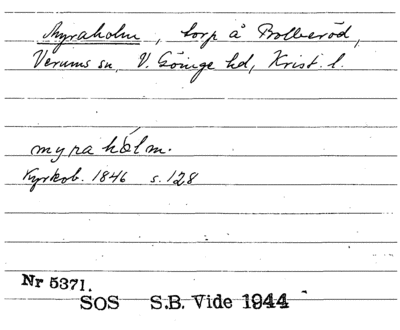 Myraholm, torp å Bolleröd,
Verums sn, V. Göinge hd, Krist. l.
myra hólm.
Kyrkob. 1846 s. 128
Nr 5371.
SOS S.B. Vide 1944